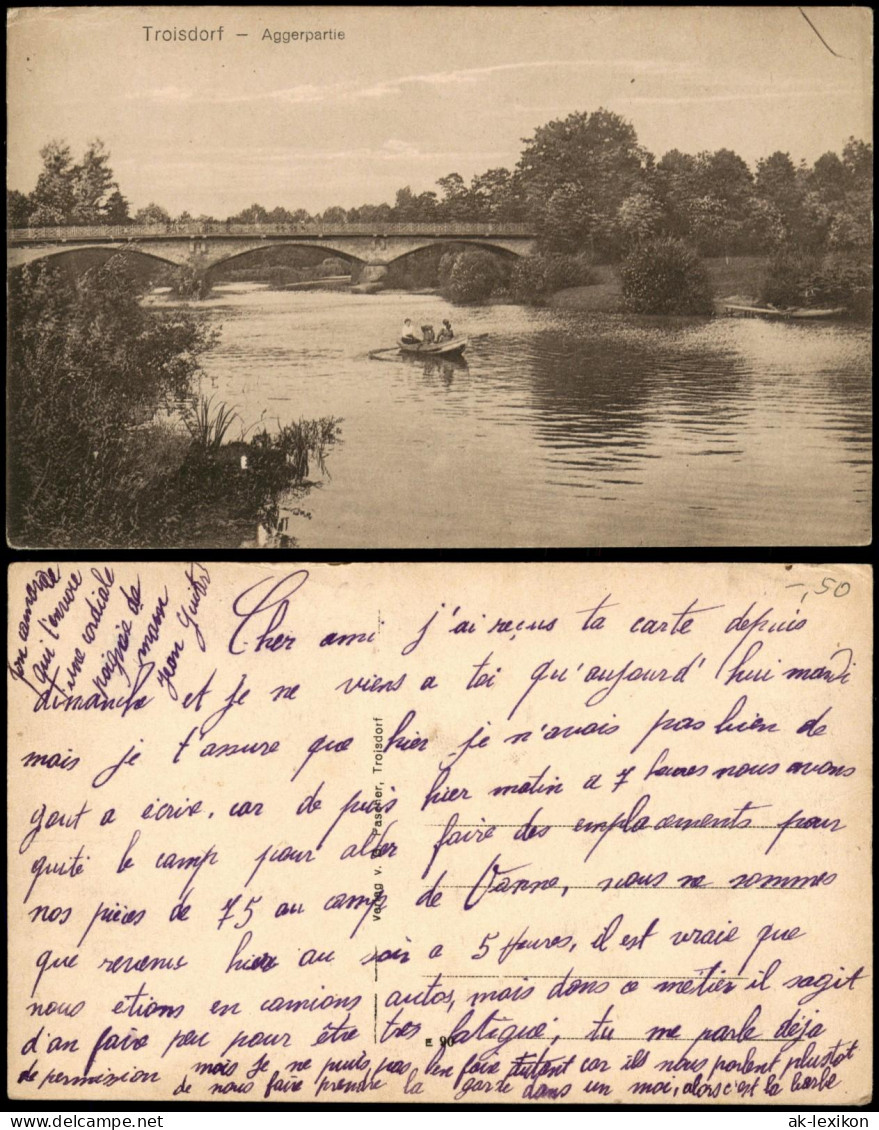 Troisdorf – Aggerpartie
-,50
Cher ami j'ai reçus ta carte depuis
dimanche et je ne viens a toi qu'aujourd'hui mardi
mais je t'assure que hier je n'avais pas bien de
gout a écrire. car de puis hier matin a 7 heures nous avons
quité le camp pour aller faire des emplacements pour
nos pièces de 75 au camp de Vanne, nous ne sommes
que revenus hier au soir a 5 heures, il est vraie que
nous étions en camions autos, mais dans ce métier il sagit
d'an faire peu pour être très fatigué, tu me parle déja
de permission mais je ne puis pas en faire autant car ils nous parlent plustot
de nous faire prendre la garde dans un moi, alors c'est la barbe
Ton camarade
qui t'envoie
une cordiale
poignée de
main
Jean
Verlag v. Pascher, Troisdorf
E 90
www.delcampe.net
ak-lexikon